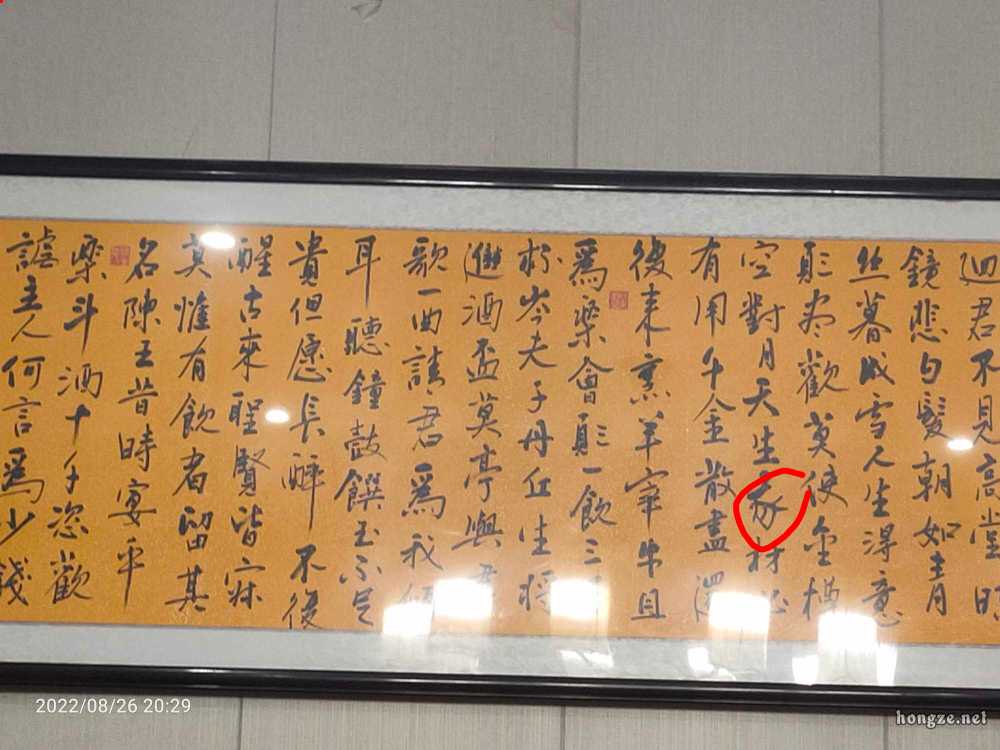 迴君不見高堂明
鏡悲白髮朝如青
絲暮成雪人生得意
須盡歡莫使金樽
空對月天生豕材必
有用千金散盡還
復来烹羊宰牛且
爲樂會須一飲三
杯岑夫子丹丘生將
進酒盃莫亭與君
歌一曲請君爲我傾
耳聽鐘鼓饌玉不足
貴但愿長醉不復
醒古來聖賢皆寂
莫惟有飲者留其
名陳王昔時宴平
樂斗酒十千恣歡
謔主人何言爲少錢
2022/08/26 20:29
hongze.net